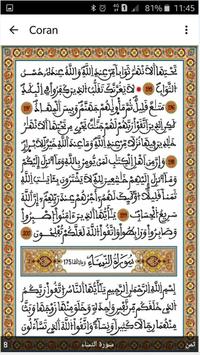 81% 11:45
Coran
تحتها الانهر ثوابا من عند الله والله عنده حسن
الثواب 195 لا يغرنك تقلب الذين كفروا في البلد
196 متع قليل ثم مأويهم جهنم وبيس المهاد
197 لكن الذين اتقوا ربهم لهم جنت تجري من تحتها
الانهر خلدين فيها نزلا من عند الله وما عند الله خير للابرار
198 وإن من اهل الكتب لمن يومن بالله وما أنزل إليكم وما
أنزل إليهم خشعين لله لا يشترون بئايت الله
ثمنا قليلا اولئك لهم أجرهم عند ربهم إن الله
سريع الحساب 199 يأيها الذين ءامنوا اصبروا
وصابروا ورابطوا واتقوا الله لعلكم تفلحون 200
سورة النساء 175
بسم الله الرحمن الرحيم يأيها الناس اتقوا ربكم
الذي خلقكم من نفس وحدة وخلق منها زوجها
وبث منهما رجالا كثيرا ونساء واتقوا الله الذي
ثمن
سورة النساء
8